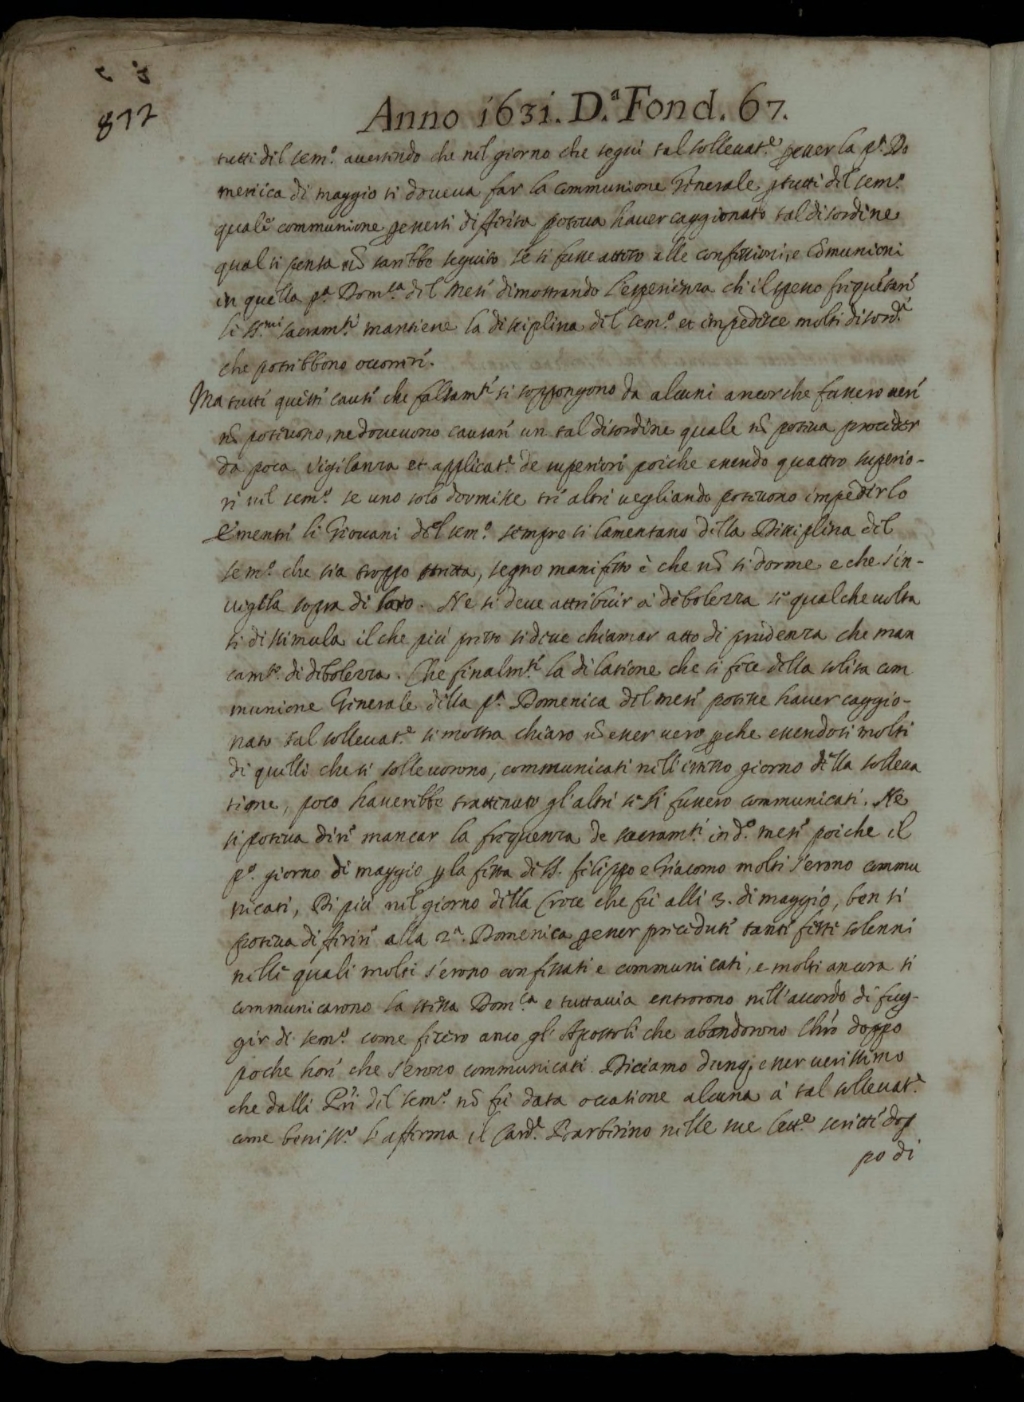 877
Anno 1631. D.ª Fond. 67.
tutti del sem.º avertindo che nel giorno che segui tal sollevat.e per esser la p.ª Do
menica di maggio si doveva far la communione Generale p tutti del sem.º
quale communione p essersi differita poteva haver caggionato tal disordine
qual si pensa nõ sarebbe seguito se si fusse atteso alle confessioni, e cõmunioni
in quella p.ª Dom.ca del Mese dimostrando l'esperienza ch'il spesso friquẽtare
li ss.mi sacram.ti mantiene la disciplina del sem.º et impedisce molti disord.i
che potribbono occorrire.
Ma tutti questi causi che falsam.te si soppongono da alcuni ancorche fussero veri
nõ potevono, ne dovevono causare un tal disordine quale nõ poteva proceder
da poca vigilanza et applicat.e de superiori poiche essendo quattro superio-
ri nel sem.º se uno solo dormisse tre altri vegliando potevono impedirlo
E mentre li Giovani del sem.º sempre si lamentano della Disciplina del
sem.º che sia troppo stritta, segno manifesto è che nõ si dorme e che s'in-
vigila sopra di loro. Ne si deve attribuir à debolezza se qualche volta
si dissimula il che più presto si deve chiamar atto di prudenza che man
cam.to di debolezza. Che finalm.te la dilatione che si fece della solita com
munione Generale della p.ª Domenica del mese potesse haver caggio-
nato tal sollevat.e si mostra chiaro nõ esser vero pche essendosi molti
di quelli che si sollevorono, communicati nell'istesso giorno della solleva
tione, poco haveribbe trattenuto gl'altri se si fussero communicati. Ne
si poteva dire mancar la frequenza de sacramti in d.º mese poiche il
p.º giorno di maggio p la festa di SS. Filippo e Giacomo molti s'erono commu
nicati, Di più nel giorno della Croce che fù alli 3. di maggio, ben si
poteva differire alla 2ª. Domenica p esser preceduti tanti festi solenni
nelli quali molti s'erono confessati e communicati, e molti ancora si
communicarono la stessa Dom.ca e tuttavia entrorono nell'accordo di fug-
gir di sem.º come ficero anco gl'Apostoli che abandorono Chro doppo
poche hore che s'erono communicati. Diciamo dunq; esser verissimo
che dalli PPri del sem.º nõ fù data occasione alcuna à tal sollevat.e
come beniss.º l'afferma il Card.e Barberino nelle sue lett.e scritti dop
po di